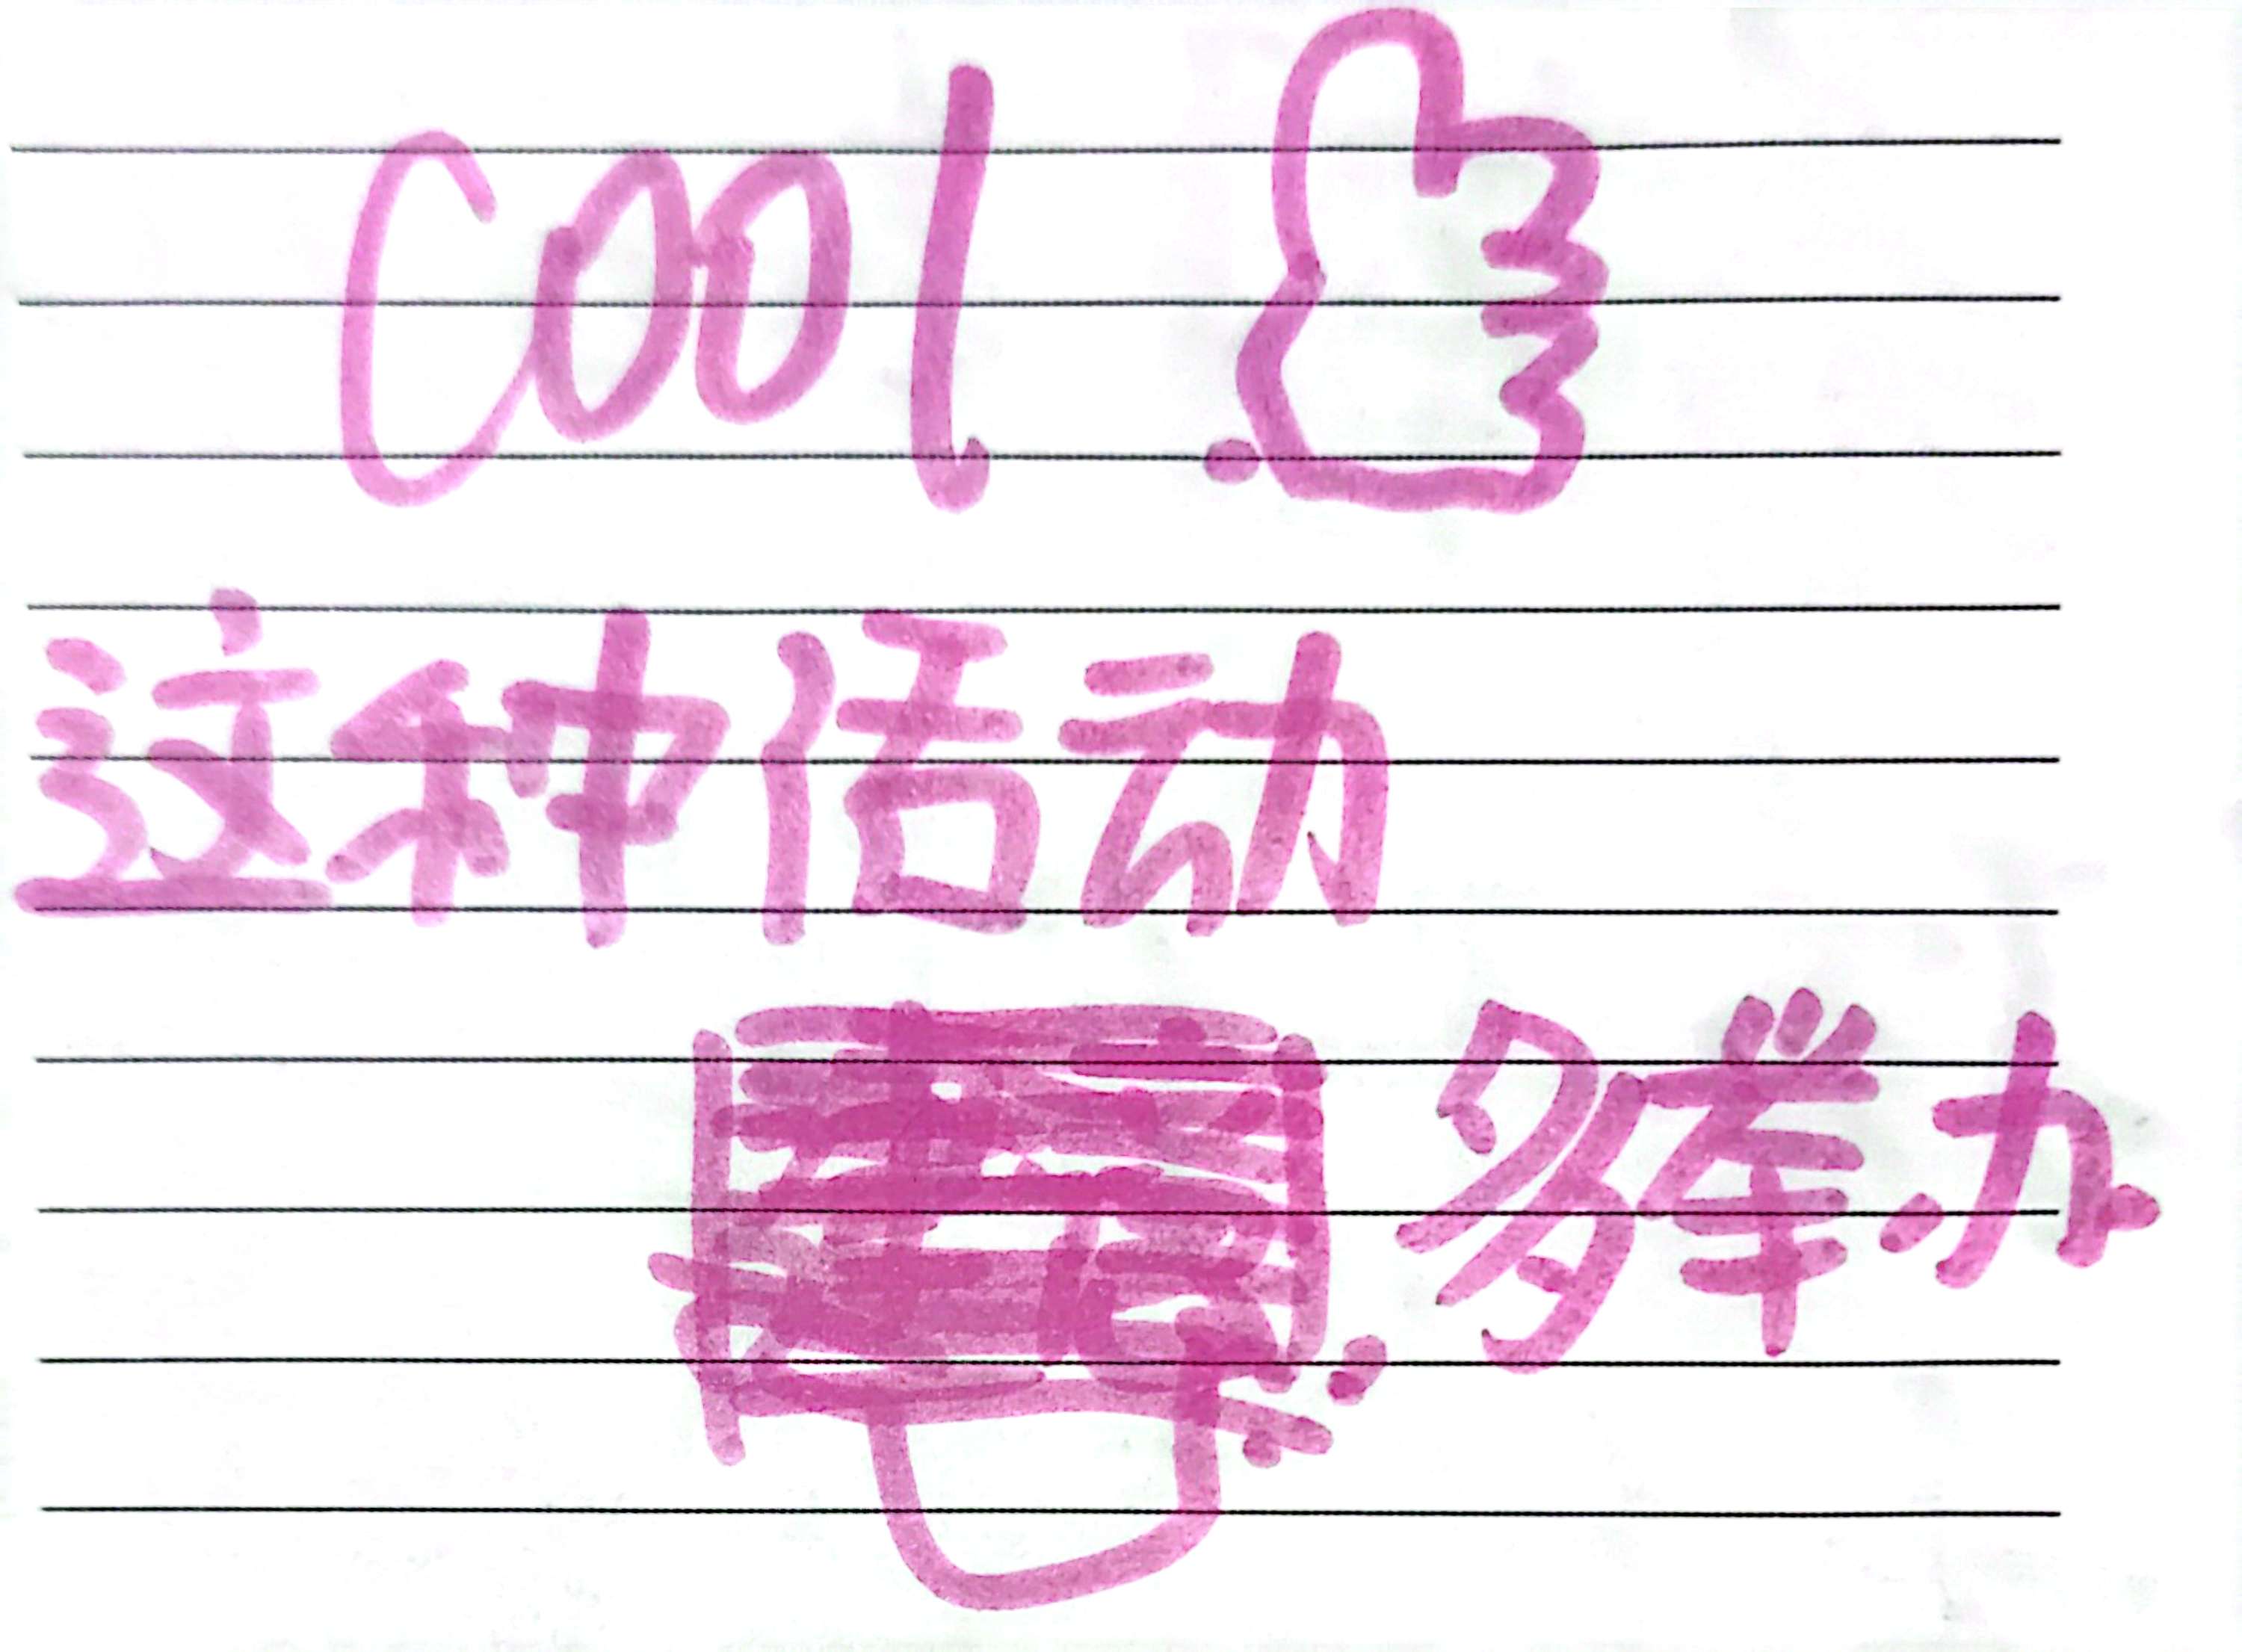 cool
这种活动
多举办